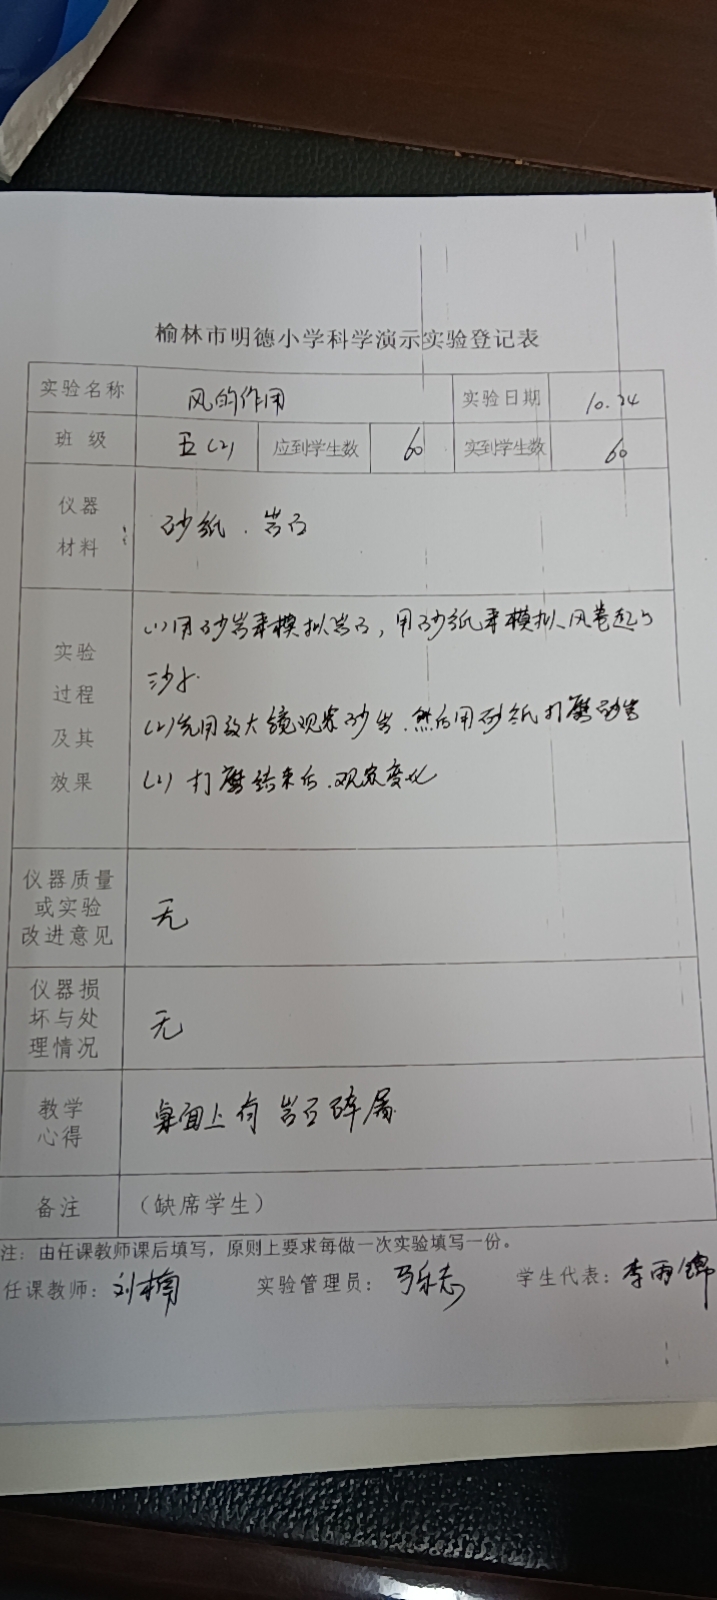 榆林市明德小学科学演示实验登记表
实验名称 风的作用 实验日期 10.24
班 级 五(2) 应到学生数 60 实到学生数 60
仪器
材料 砂纸、岩石
实验
过程
及其
效果
(1)用砂岩来模拟岩石，用砂纸来模拟风卷起的
沙子.
(2)先用放大镜观察砂岩.然后用砂纸打磨砂岩
(2)打磨结束后.观察变化
仪器质量
或实验
改进意见 无
仪器损
坏与处
理情况 无
教学
心得 桌面上有岩石碎屑
备注 （缺席学生）
注：由任课教师课后填写，原则上要求每做一次实验填写一份。
任课教师：刘楠 实验管理员： 学生代表：李雨锦